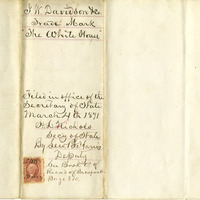 J. W. Davidson & Co
Trade Mark
"The White House"
Filed in office of the
Secretary of State
March 4th 1891
Nichols
Secy of State
By
Deputy
Book
Record of
Page